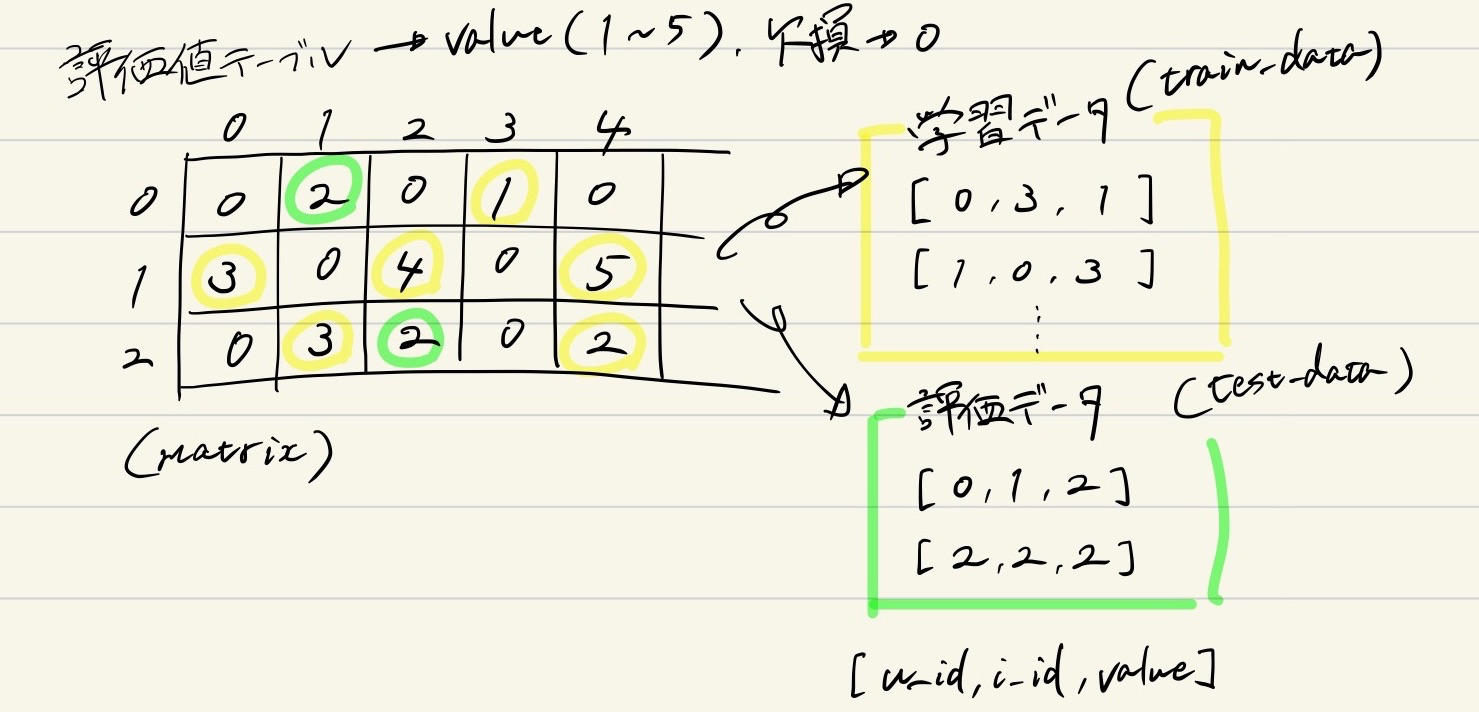 評価値テーブル → value (1~5), 欠損→0
(train-data)
0 1 2 3 4
0 0 2 0 1 0
1 3 0 4 0 5
2 0 3 2 0 2
(matrix)
学習データ
[ 0, 3, 1 ]
[ 1, 0, 3 ]
評価データ (test-data)
[ 0, 1, 2 ]
[ 2, 2, 2 ]
[ u_id, i_id, value ]